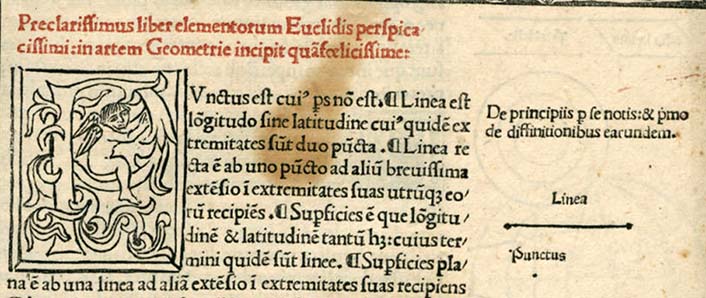 Preclarissimus liber elementorum Euclidis perspica⸗
cissimi: in artem Geometrie incipit quãfœlicissime:
PVnctus est cuiꝰ ps nõ est. ¶ Linea est
lõgitudo sine latitudine cuiꝰ quidẽ ex
tremitates sũt duo pũcta. ¶ Linea re
cta ẽ ab uno pũcto ad aliũ breuissima
extẽsio ĩ extremitates suas utrũqꝫ eo⸗
rũ recipiẽs. ¶ Supficies ẽ que lõgitu⸗
dinẽ & latitudinẽ tantũ hꝫ: cuius ter⸗
mini quidẽ sũt linee. ¶ Supficies pla⸗
na ẽ ab una linea ad aliã extẽsio ĩ extremitates suas recipiens
De principiis p se notis: & pmo
de diffinitionibus earundem.
Linea
Punctus